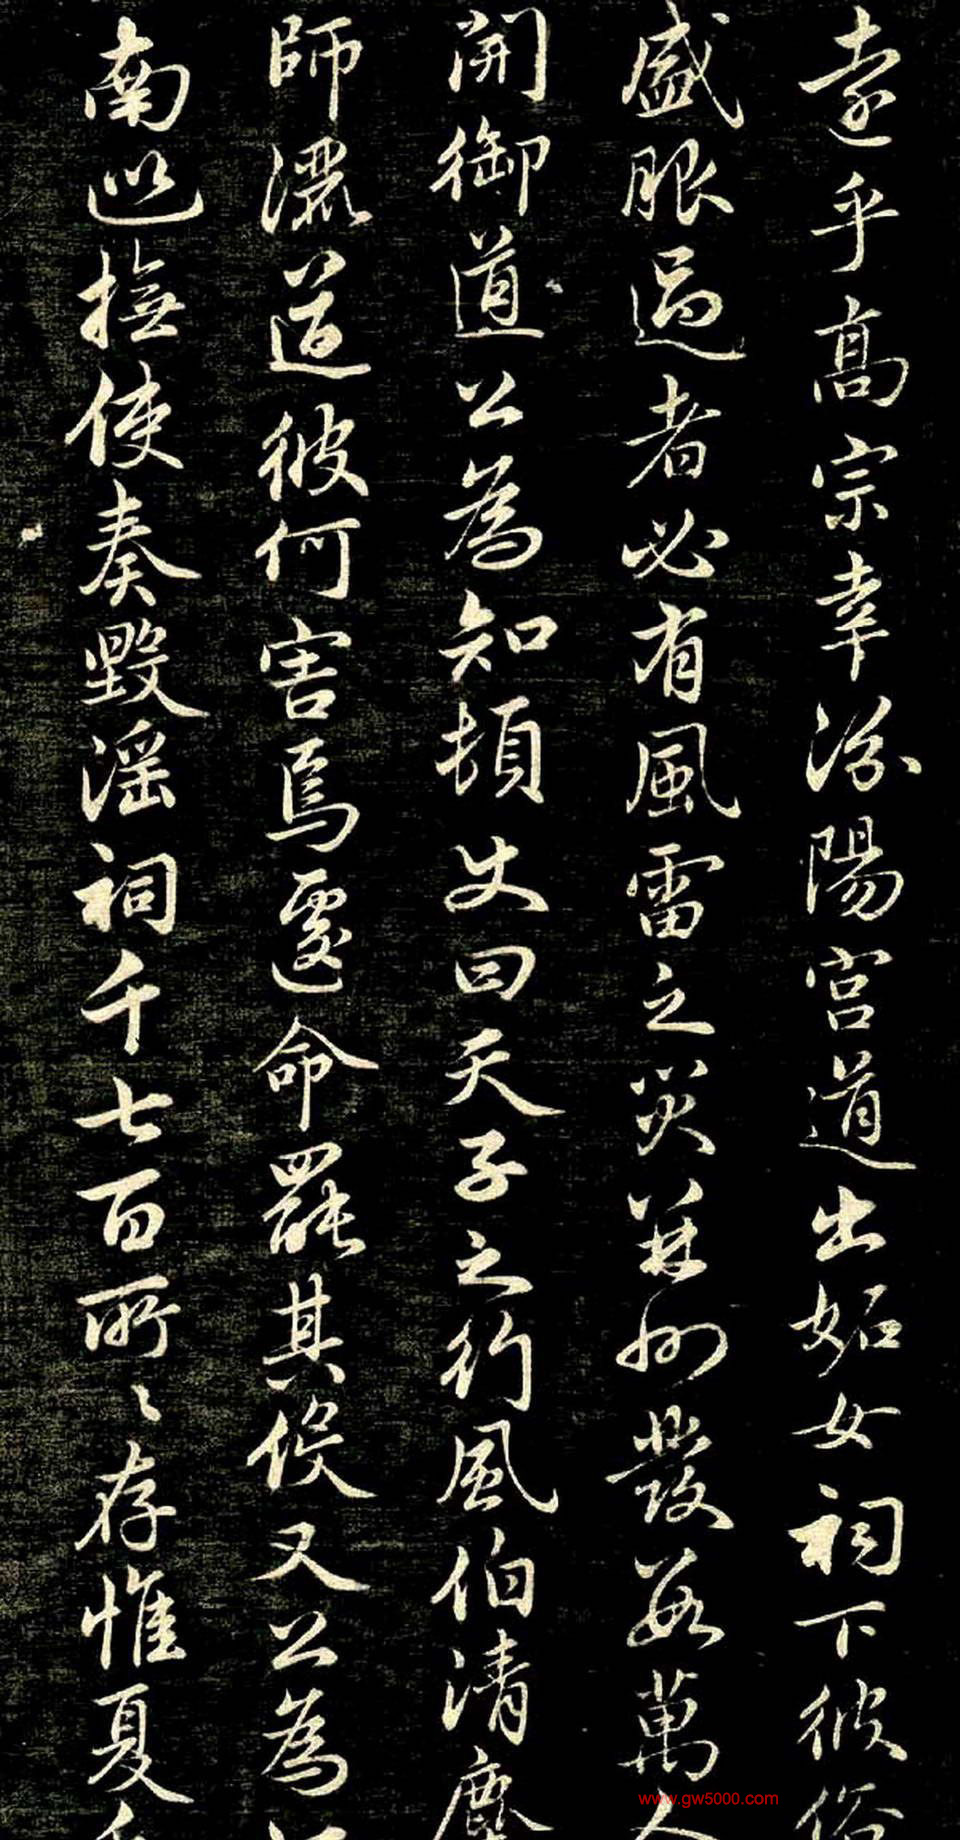 遠乎高宗幸汾陽宮道出妬女祠下彼俗
盛服過者必有風雷之災并州發數萬人
開御道公為知頓史曰天子之行風伯清塵
師灑道彼何害焉遽命罷其役又公為
南巡撫使奏毀淫祠千七百所〻存惟夏
www.gw5000.com